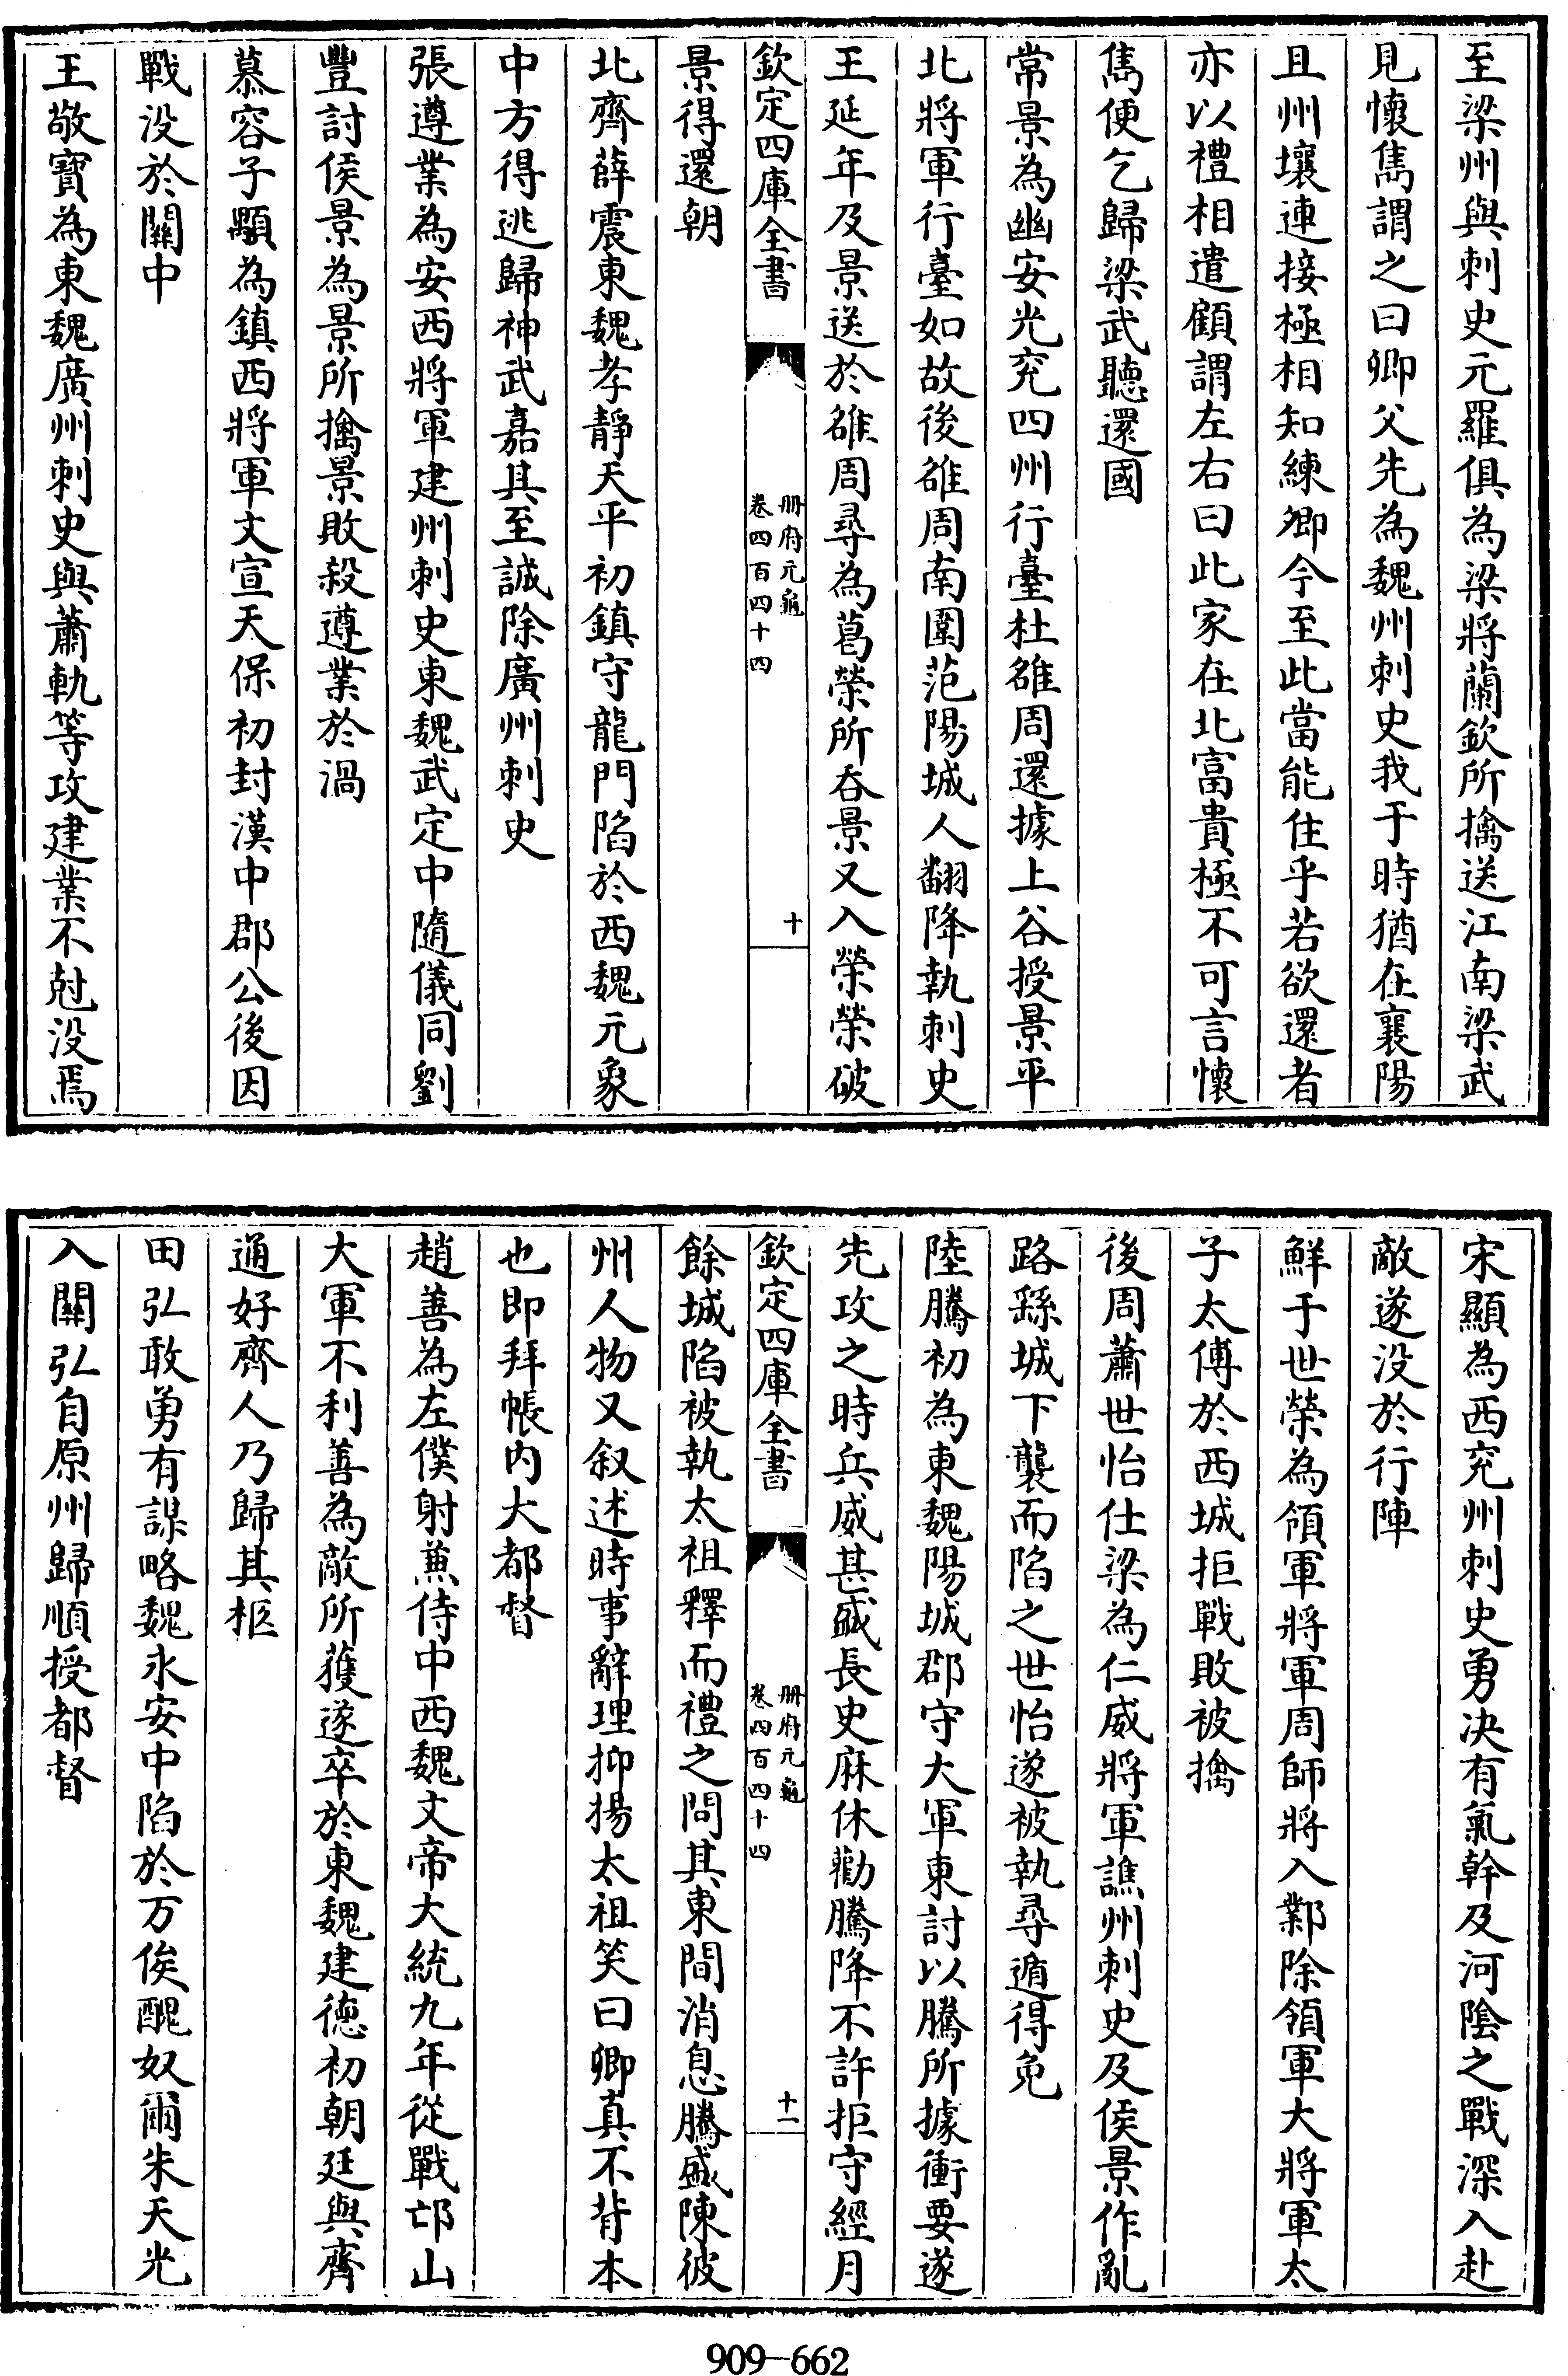 至梁州與刺史元羅俱為梁將蘭欽所擒送江南梁武
見懷雋謂之曰卿父先為魏州刺史我于時猶在襄陽
且州壤連接極相知練卿今至此當能住乎若欲還者
亦以禮相遣顧謂左右曰此家在北富貴極不可言懷
雋便乞歸梁武聽還國
常景為幽安光兖四州行臺杜雒周還據上谷授景平
北將軍行臺如故後雒周南圍范陽城人翻降執刺史
王延年及景送於雒周尋為葛榮所吞景又入榮榮破
欽定四庫全書
册府元龜
卷四百四十四
十
景得還朝
北齊薛震東魏孝靜天平初鎮守龍門陷於西魏元象
中方得逃歸神武嘉其至誠除廣州刺史
張遵業為安西將軍建州刺史東魏武定中隨儀同劉
豐討侯景為景所擒景敗殺遵業於渦
慕容子顒為鎮西將軍文宣天保初封漢中郡公後因
戰没於關中
王敬寶為東魏廣州刺史與蕭軌等攻建業不尅没焉
宋顯為西兖州刺史勇决有氣幹及河陰之戰深入赴
敵遂没於行陣
鮮于世榮為領軍將軍周師將入鄴除領軍大將軍太
子太傅於西城拒戰敗被擒
後周蕭世怡仕梁為仁威將軍譙州刺史及侯景作亂
路繇城下襲而陷之世怡遂被執尋遁得免
陸騰初為東魏陽城郡守大軍東討以騰所據衝要遂
先攻之時兵威甚盛長史麻休勸騰降不許拒守經月
欽定四庫全書
册府元龜
卷四百四十四
十一
餘城陷被執太祖釋而禮之問其東間消息騰盛陳彼
州人物又叙述時事辭理抑揚太祖笑曰卿真不背本
也即拜帳内大都督
趙善為左僕射兼侍中西魏文帝大統九年從戰邙山
大軍不利善為敵所獲遂卒於東魏建德初朝廷與齊
通好齊人乃歸其柩
田弘敢勇有謀略魏永安中陷於万俟醜奴爾朱天光
入關弘自原州歸順授都督
909-662